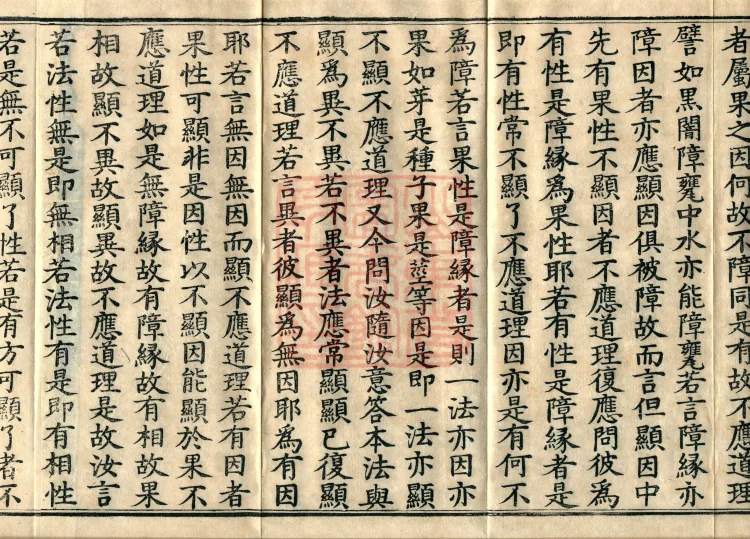 者屬果之因何故不障同是有故不應道理
譬如黑闇障甕中水亦能障甕若言障緣亦
障因者亦應顯因俱被障故而言但顯因中
先有果性不顯因者不應道理復應問彼為
有性是障緣為果性耶若有性是障緣者是
即有性常不顯了不應道理因亦是有何不
為障若言果性是障緣者是則一法亦因亦
果如芽是種子果是莖等因是即一法亦顯
不顯不應道理又今問汝隨汝意答本法與
顯為異不異若不異者法應常顯顯已復顯
不應道理若言異者彼顯為無因耶為有因
耶若言無因無因而顯不應道理若有因者
果性可顯非是因性以不顯因能顯於果不
應道理如是無障緣故有障緣故有相故果
相故顯不異故顯異故不應道理是故汝言
若法性無是即無相若法性有是即有相性
若是無不可顯了性若是有方可顯了者不